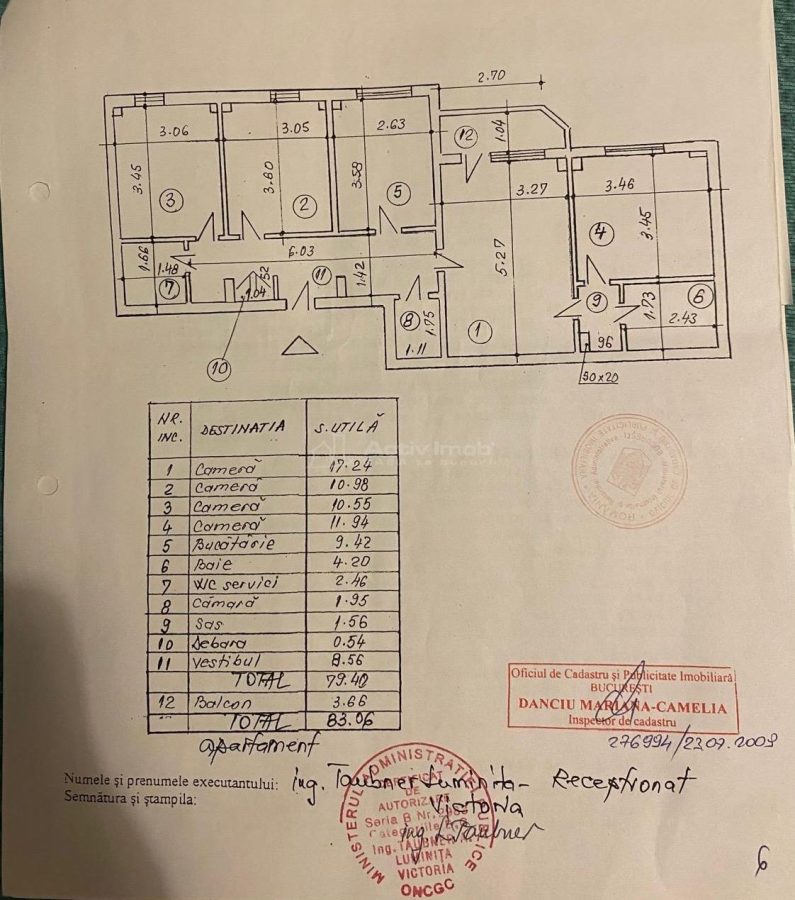 2.70
12
1.04
3.06
3.05
2.63
3.45
3.80
3.58
3
2
5
3.27
3.46
5.27
4
3.45
1.66
1.48
6.03
7
1.04
.52
11
1.42
8
1.75
1.11
1
9
1.73
6
2.43
96
50x20
10
NR. INC. DESTINATIA S. UTILĂ
1 Cameră 17.24
2 Cameră 10.98
3 Cameră 10.55
4 Cameră 11.94
5 Bucătărie 9.42
6 Baie 4.20
7 WC servici 2.46
8 Cămară 1.95
9 Sas 1.56
10 Debara 0.54
11 Vestibul 8.56
TOTAL 79.40
12 Balcon 3.66
TOTAL 83.06
apartament
Activ Imob
Oficiul de Cadastru și Publicitate Imobiliară
BUCUREȘTI
DANCIU MARIANA-CAMELIA
Inspector de cadastru
276994/23.09.2008
Numele și prenumele executantului: ing. Taubner Luminita- Victoria
Recepționat
Semnătura și ștampila: ing. L Taubner
MINISTERUL ADMINISTRAȚIEI PUBLICE
CERTIFICAT
DE
AUTORIZARE
Seria B Nr.
Ing. TAUBNER
LUMINIȚA
VICTORIA
ONCGC
6